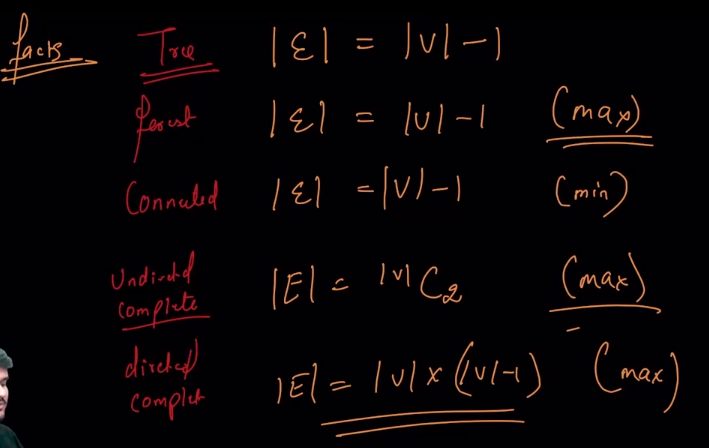 facts Tree |E| = |V| - 1
forest |E| = |V| - 1 (max)
Connected |E| = |V| - 1 (min)
Undirected complete |E| = |V|C2 (max)
directed complete |E| = |V| × (|V| - 1) (max)